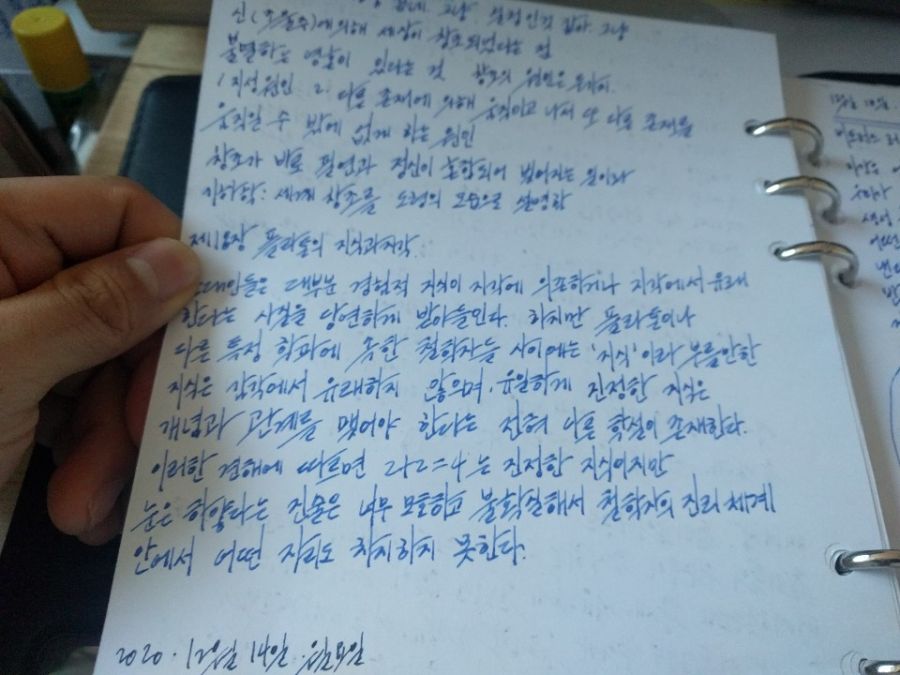 신(조물주)에 의해 세상이 창조되었다는 것
불멸하는 영혼이 있다는 것 창조의 원인은 두가지
1 지성원인 2. 다른 존재에 의해 움직이고 나서 또 다른 존재를
움직일 수 밖에 없게 하는 원인
창조가 바로 필연과 정신이 혼합되어 빚어지는 일이라
기하학: 세계 창조를 도형의 모습으로 설명함
제18장 플라톤의 지식과 지각
현대인들은 대부분 경험적 지식이 지각에 의존하거나 지각에서 유래
한다는 사실을 당연하게 받아들인다. 하지만 플라톤이나
다른 특정 학파에 속한 철학자들 사이에는 '지식'이라 부를만한
지식은 감각에서 유래하지 않으며, 유일하게 진정한 지식은
개념과 관계를 맺어야 한다는 전혀 다른 학설이 존재한다.
이러한 견해에 따르면 2+2=4는 진정한 지식이지만
눈은 하얗다는 진술은 너무 모호하고 불확실해서 철학자의 진리 체계
안에서 어떤 자리도 차지하지 못한다.
2020. 12월 14일. 월요일